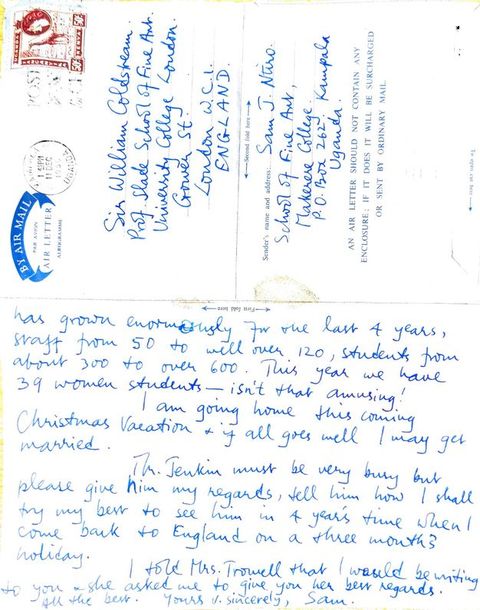 Sir William Coldstream.
Prof. Slade School of Fine Art.
University College London
Gower St.
London W.C.1.
ENGLAND.
BY AIR MAIL
PAR AVION
AIR LETTER
AEROGRAMME
Second fold here
Sender's name and address:
Sam J. Ntiro.
School of Fine Art,
Makerere College
P.O. Box 262, Kampala
Uganda.
AN AIR LETTER SHOULD NOT CONTAIN ANY
ENCLOSURE; IF IT DOES IT WILL BE SURCHARGED
OR SENT BY ORDINARY MAIL.
To open cut here
First fold here
has grown enormously for the last 4 years,
staff from 50 to well over 120, students from
about 300 to over 600. This year we have
39 women students — isn't that amusing!
I am going home this coming
Christmas Vacation & if all goes well I may get
married.
Mr. Jenkin must be very busy but
please give him my regards, tell him how I shall
try my best to see him in 4 years time when I
come back to England on a three months
holiday.
I told Mrs. Trowell that I would be writing
to you & she asked me to give you her best regards.
All the best. Yours v. sincerely, Sam.